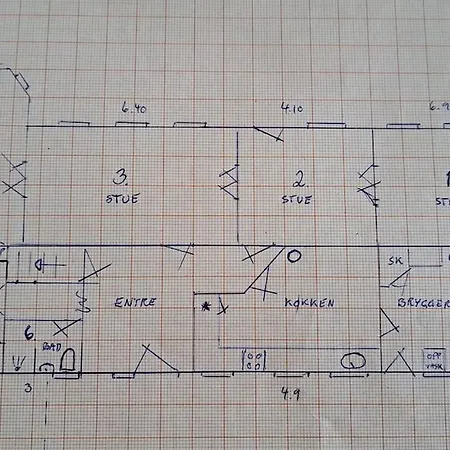 6.40
4.10
6.9
3.
STUE
2.
STUE
1
ST
SK
ENTRE
KØKKEN
BRYGGER
6.
BAD
OPP
VASK
3
4.9